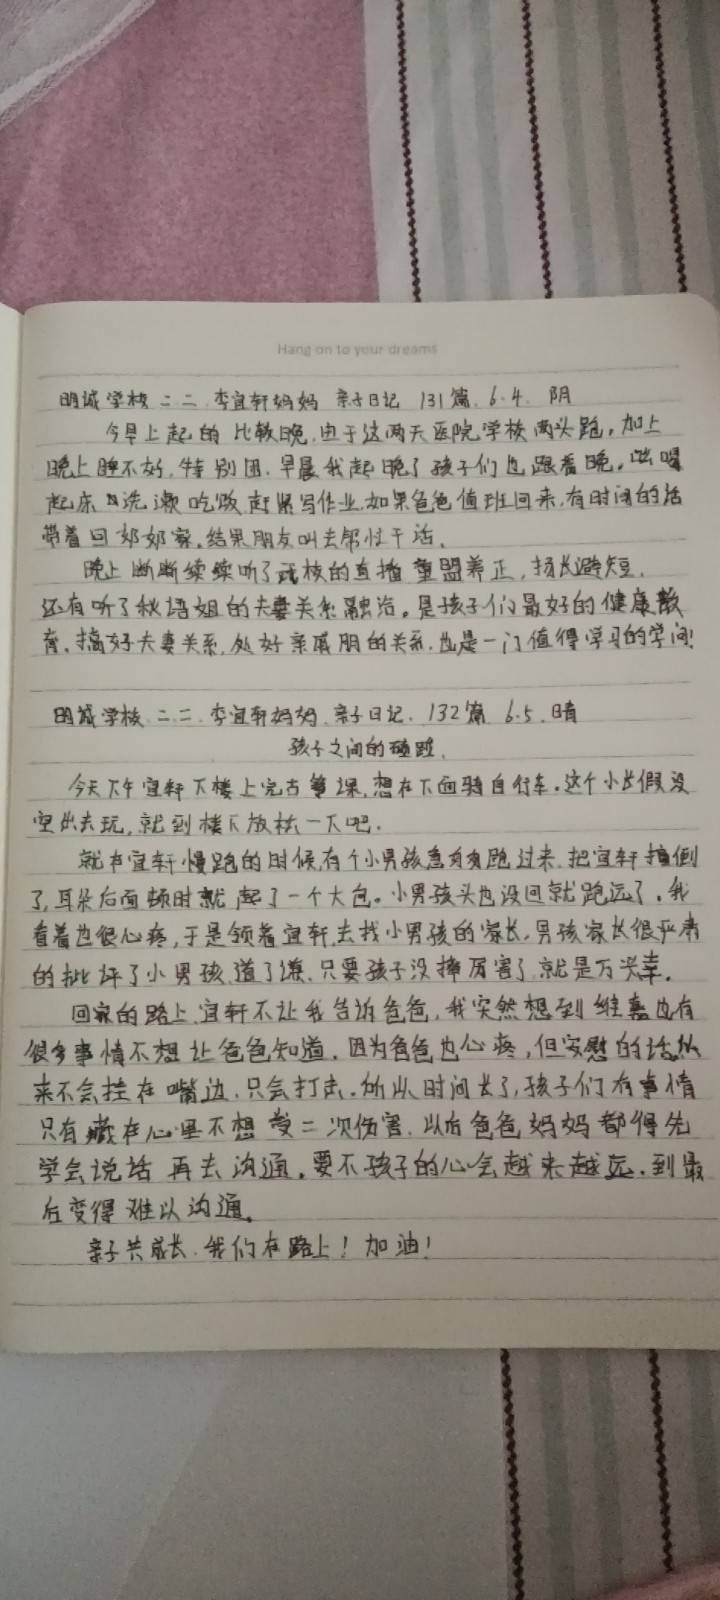 Hang on to your dreams
明诚学校 二.二. 李宜轩妈妈 亲子日记 131篇. 6.4. 阴
今早上起的比较晚,由于这两天医院学校两头跑,加上
晚上睡不好,特别困.早晨我起晚了孩子们也跟着晚,
起床 洗漱吃饭赶紧写作业,如果爸爸值班回来,有时间的话
带着回奶奶家.结果朋友叫去帮忙干活.
晚上断断续续听了 校的直播 蒙养正,扬长避短.
还有听了秋语姐的夫妻关系融洽。是孩子们最好的健康教
育.搞好夫妻关系,处好亲戚朋的关系.也是一门值得学习的学问!
明诚学校.二.二.李宜轩妈妈.亲子日记.132篇 6.5.晴
孩子之间的碰
今天下午宜轩下楼上完古筝课,想在下面骑自行车.这个小长假没
空出去玩,就到楼下放松一下吧.
就在宜轩慢跑的时候,有个小男孩急匆匆跑过来,把宜轩撞倒
了,耳朵后面顿时就起了一个大包。小男孩头也没回就跑远了.我
看着也很心疼,于是领着宜轩,去找小男孩的家长,男孩家长很严肃
的批评了小男孩,道了谦.只要孩子没摔厉害了就是万幸.
回家的路上,宜轩不让我告诉爸爸,我突然想到 也有
很多事情不想让爸爸知道.因为爸爸也心疼,但安慰的话从
来不会挂在嘴边.只会打击.所以时间长了,孩子们有事情
只有藏在心里不想受二次伤害.以后爸爸妈妈都得先
学会说话 再去沟通.要不孩子的心会越来越远.到最
后变得难以沟通.
亲子共成长.我们在路上!加油!